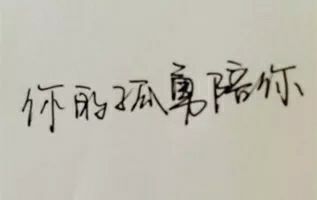 你的孤勇陪你